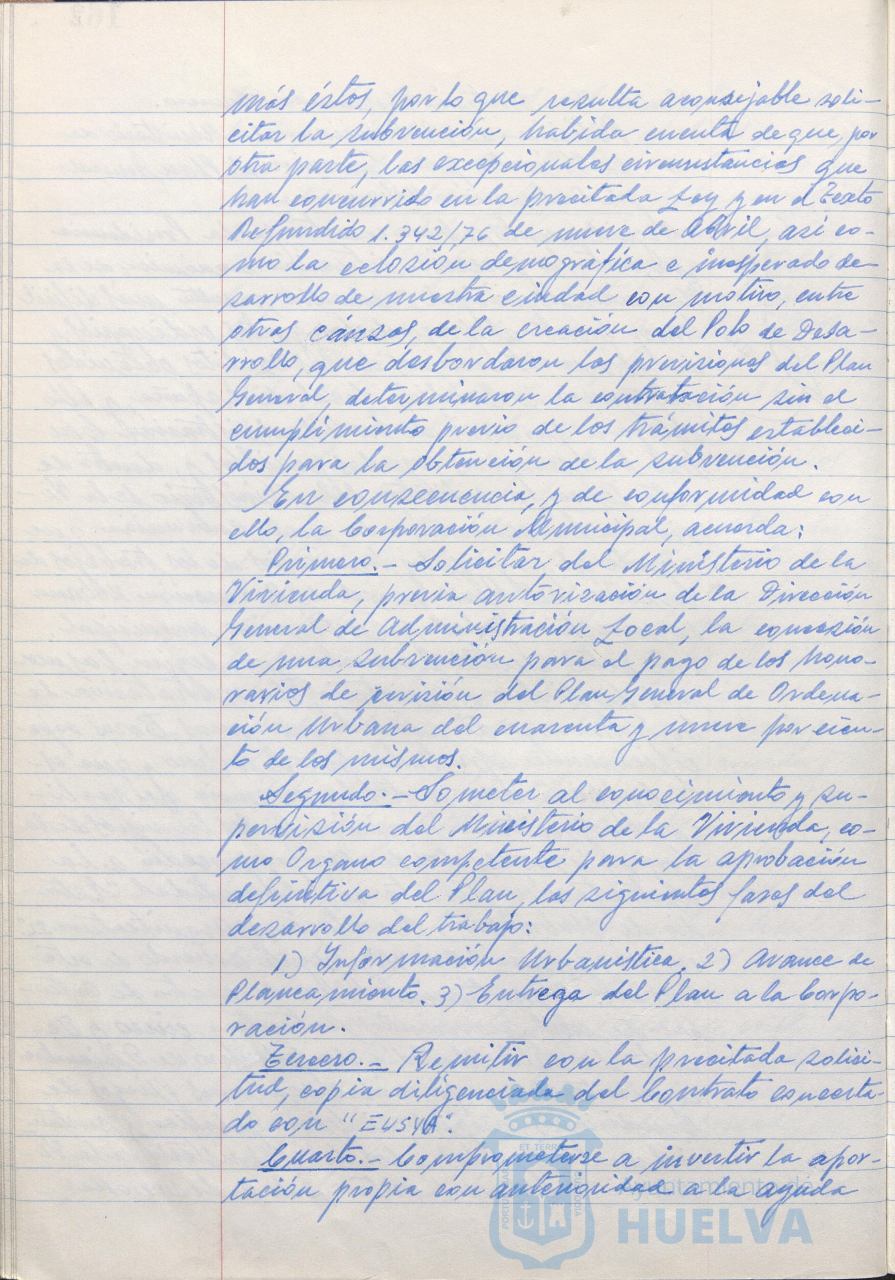 más éstos, por lo que resulta aconsejable soli-
citar la subvención, habida cuenta de que, por
otra parte, las excepcionales circunstancias que
han concurrido en la precitada Ley y en el Texto
Refundido 1.342/76 de nueve de Abril, así co-
mo la eclosión demográfica e inesperado de-
sarrollo de nuestra ciudad con motivo, entre
otras cáusas, de la creación del Polo de Desa-
rrollo, que desbordaron las previsiones del Plan
General, determinaron la contratación sin el
cumplimiento previo de los trámites estableci-
dos para la obtención de la subvención.
En consecuencia, y de conformidad con
ello, la Corporación Municipal, acuerda:
Primero.- Solicitar del Ministerio de la
Vivienda, previa autorización de la Dirección
General de Administración Local, la concesión
de una subvención para el pago de los hono-
rarios de revisión del Plan General de Ordena-
ción Urbana del cuarenta y nueve por cien-
to de los mismos.
Segundo.- Someter al conocimiento y su-
pervisión del Ministerio de la Vivienda, co-
mo Organo competente para la aprobación
definitiva del Plan, las siguientes fases del
desarrollo del trabajo:
1) Información Urbanística. 2) Avance de
Planeamiento. 3) Entrega del Plan a la Corpo-
ración.
Tercero.- Remitir con la precitada solici-
tud, copia diligenciada del Contrato concerta-
do con "EUSYA".
Cuarto.- Comprometerse a invertir la apor-
tación propia con anterioridad a la ayuda
Ayuntamiento de
HUELVA